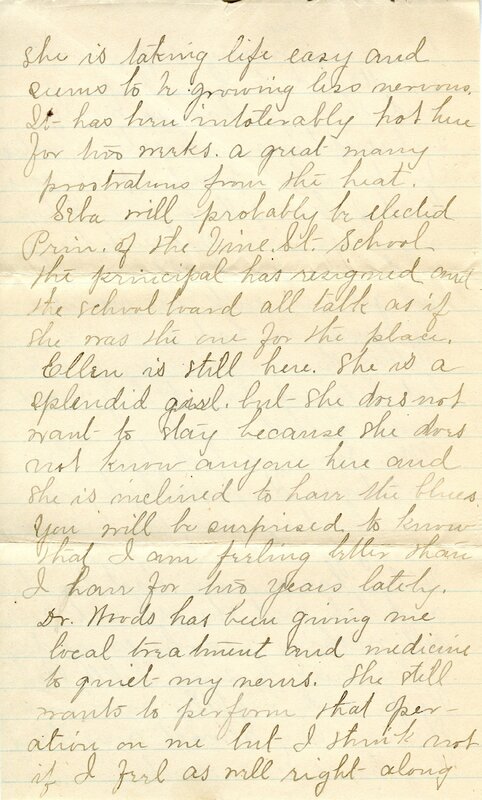 she is taking life easy and
seems to be growing less nervous.
It has been intolerably hot here
for two weeks. a great many
prostrations from the heat.
Elba will probably be elected
Prin. of the Vine. St. School
the principal has resigned and
the school board all talk as if
she was the one for the place.
Ellen is still here. She is a
splendid girl. but she does not
want to stay because she does
not know anyone here and
she is inclined to have the blues
You will be surprised to know
that I am feeling better than
I have for two years lately.
Dr. Woods has been giving me
local treatment and medicine
to quiet my nerves. She still
wants to perform that oper-
ation on me but I think not
if I feel as well right along